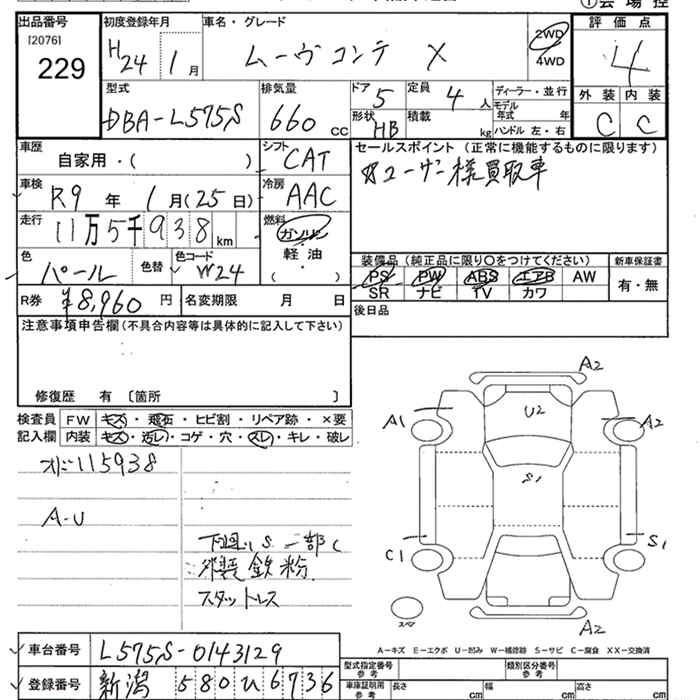 出品番号
[2076]
229
初度登録年月
H24 1月
車名・グレード
ムーヴコンテ X
2WD
4WD
評価点
4
外装 内装
C C
型式
DBA-L575S
排気量
660 cc
ドア 5
形状 HB
定員 4 人
積載 kg
ディーラー・並行
モデル年式 年
ハンドル 左・右
車歴
自家用・( )
シフト CAT
車検 R9 年 1 月 (25 日)
冷房 AAC
走行 11万5千938 km
燃料
ガソリン
軽油
( ・ )
色 パール
色替
色コード W24
R券 ¥8,960 円
名変期限 月 日
セールスポイント (正常に機能するものに限ります)
☆ユーザー様買取車
装備品 (純正品に限り○をつけてください)
新車保証書
PS PW ABS エアB AW
SR ナビ TV カワ
有・無
後日品
注意事項申告欄(不具合内容等は具体的に記入して下さい)
修復歴 有 〔箇所 〕
検査員 FW キズ・飛石・ヒビ割・リペア跡・×要
記入欄 内装 キズ・汚レ・コゲ・穴・スレ・キレ・破レ
オド115938
A-U
下廻りS一部C
外装鉄粉
スタットレス
A2
U2
A1 A2
S1
C1 S1
スペア
A2
A-キズ E-エクボ U-凹み W-補修跡 S-サビ C-腐食 XX-交換済
車台番号 L575S-0143129
登録番号 新潟 580 ひ 6736
型式指定番号
類別区分番号
車庫証明用参考
長さ cm
幅 cm
高さ cm